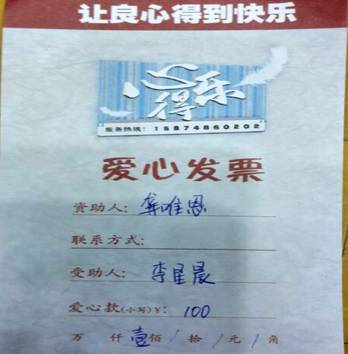 让良心得到快乐
心得乐
服务热线：15874860202
爱心发票
资助人：龚唯恩
联系方式：
受助人：李星晨
爱心款(小写)¥：100
万 仟 壹佰 / 拾 / 元 / 角